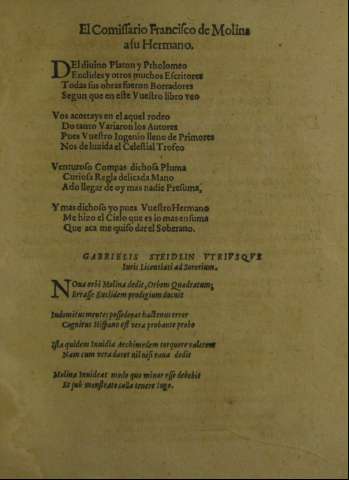 El Comissario Francisco de Molina
a su Hermano.
DEl diuino Platon y Ptholomeo
Euclides y otros muchos Escritores
Todas sus obras fueron Borradores
Segun que en este Vuestro libro veo
Vos acortays en el aquel rodeo
Do tanto Variaron los Autores
Pues Vuestro Ingenio lleno de Primores
Nos de luzida el Celestial Trofeo
Venturoso Compas dichosa Pluma
Curiosa Regla delicada Mano
Ado llegar de oy mas nadie Presuma,
Y mas dichoso yo pues Vuestro Hermano
Me hizo el Cielo que es lo mas en suma
Que aca me quiso dar el Soberano.
GABRIELIS STEIDLIN VTRIVSQVE
Iuris Licentiati ad Sororium.
NOua orbi Molina dedit, Orbem Quadratum,
Errasse Euclidem prodigium docuit
Indomitus mentes possederat hactenus error
Cognitus Hispano est vera probante probo
Ista quidem Inuidia Archimedem torquere valerent
Nam cum vera daret nil nisi vana dedit
Molina Inuideat modo quo minor esse debebit
Et sub monstrato colla tenere iugo.